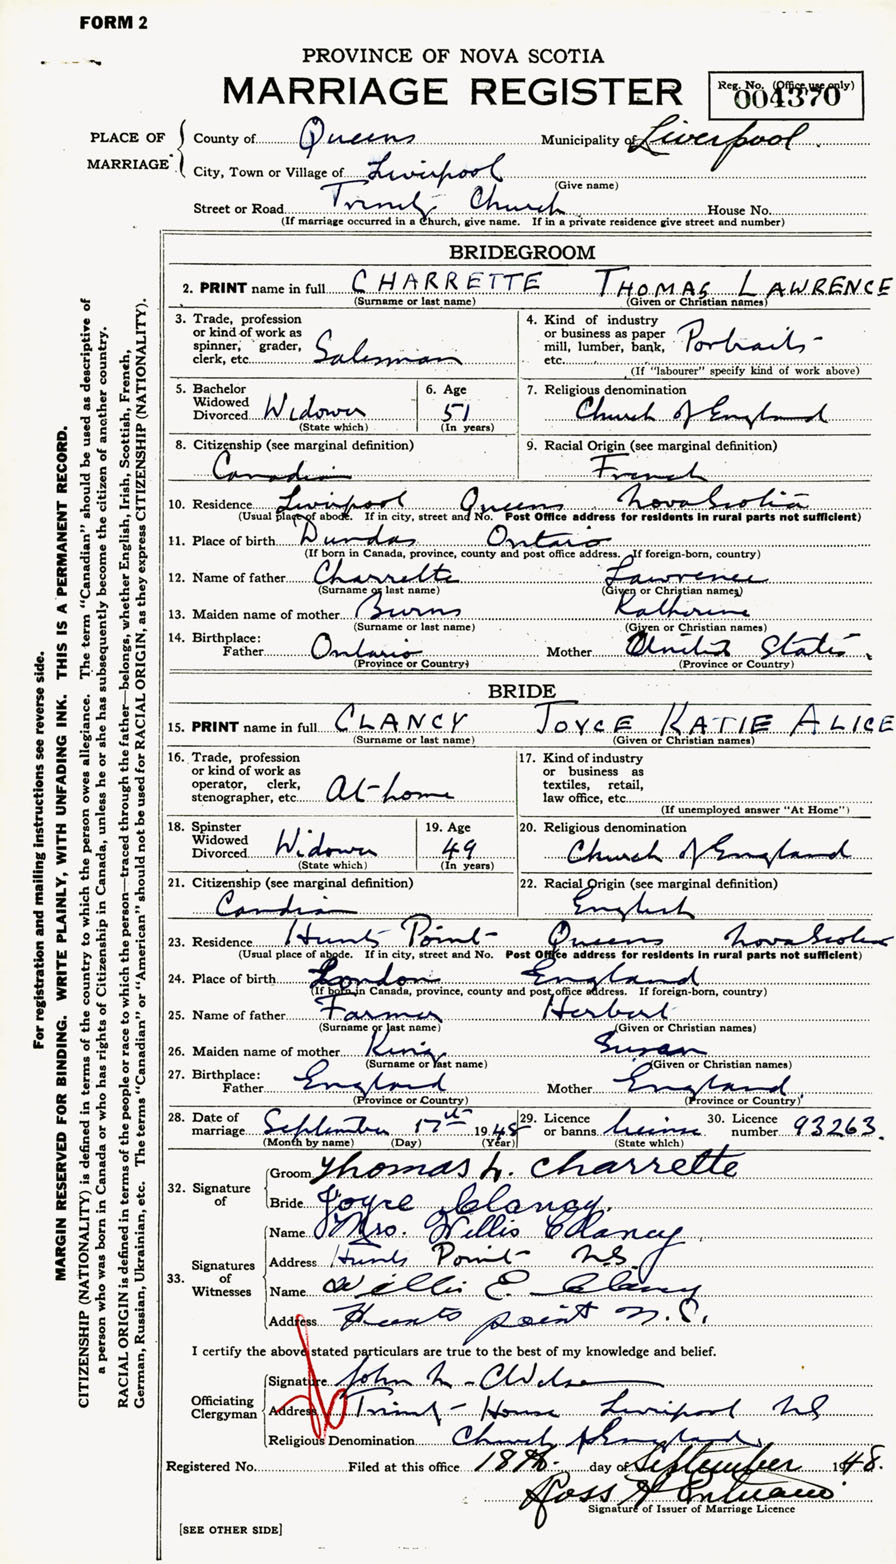 FORM 2
PROVINCE OF NOVA SCOTIA
MARRIAGE REGISTER
Reg. No. (Office use only)
004370
PLACE OF MARRIAGE
County of Queens Municipality of Liverpool
City, Town or Village of Liverpool
(Give name)
Street or Road Trinity Church House No.
(If marriage occurred in a Church, give name. If in a private residence give street and number)
BRIDEGROOM
2. PRINT name in full CHARRETTE THOMAS LAWRENCE
(Surname or last name) (Given or Christian names)
3. Trade, profession or kind of work as spinner, grader, clerk, etc. Salesman
4. Kind of industry or business as paper mill, lumber, bank, etc. Portraits
(If "labourer" specify kind of work above)
5. Bachelor Widowed Divorced Widower
(State which)
6. Age 51
(In years)
7. Religious denomination
Church of England
8. Citizenship (see marginal definition)
Canadian
9. Racial Origin (see marginal definition)
French
10. Residence Liverpool Queens Nova Scotia
(Usual place of abode. If in city, street and No. Post Office address for residents in rural parts not sufficient)
11. Place of birth Dundas Ontario
(If born in Canada, province, county and post office address. If foreign-born, country)
12. Name of father Charrette Lawrence
(Surname or last name) (Given or Christian names)
13. Maiden name of mother Burns Katherine
(Surname or last name) (Given or Christian names)
14. Birthplace:
Father Ontario Mother United States
(Province or Country) (Province or Country)
BRIDE
15. PRINT name in full CLANCY JOYCE KATIE ALICE
(Surname or last name) (Given or Christian names)
16. Trade, profession or kind of work as operator, clerk, stenographer, etc. At-home
17. Kind of industry or business as textiles, retail, law office, etc.
(If unemployed answer "At Home")
18. Spinster Widowed Divorced Widower
(State which)
19. Age 49
(In years)
20. Religious denomination
Church of England
21. Citizenship (see marginal definition)
Candian
22. Racial Origin (see marginal definition)
English
23. Residence Hunts Point Queens Nova Scotia
(Usual place of abode. If in city, street and No. Post Office address for residents in rural parts not sufficient)
24. Place of birth London England
(If born in Canada, province, county and post office address. If foreign-born, country)
25. Name of father Farmer Herbert
(Surname or last name) (Given or Christian names)
26. Maiden name of mother King Susan
(Surname or last name) (Given or Christian names)
27. Birthplace:
Father England Mother England
(Province or Country) (Province or Country)
28. Date of marriage September 17th 1948
(Month by name) (Day) (Year)
29. Licence or banns license
(State which)
30. Licence number 93263.
32. Signature of
Groom Thomas L. Charrette
Bride Joyce Clancy.
33. Signatures of Witnesses
Name Mrs. Willis Clancy
Address Hunts Point N.S.
Name Willis E. Clancy
Address Hunts point N.S.
I certify the above stated particulars are true to the best of my knowledge and belief.
Officiating Clergyman
Signature John
Address Trinity House Liverpool NS
Religious Denomination Church of England
Registered No. Filed at this office 18th day of September 1948.
Ross
Signature of Issuer of Marriage Licence
[SEE OTHER SIDE]
For registration and mailing instructions see reverse side.
MARGIN RESERVED FOR BINDING. WRITE PLAINLY, WITH UNFADING INK. THIS IS A PERMANENT RECORD.
CITIZENSHIP (NATIONALITY) is defined in terms of the country to which the person owes allegiance. The term "Canadian" should be used as descriptive of
a person who was born in Canada or who has rights of Citizenship in Canada, unless he or she has subsequently become the citizen of another country.
RACIAL ORIGIN is defined in terms of the people or race to which the person—traced through the father—belongs, whether English, Irish, Scottish, French,
German, Russian, Ukrainian, etc. The terms "Canadian" or "American" should not be used for RACIAL ORIGIN, as they express CITIZENSHIP (NATIONALITY).